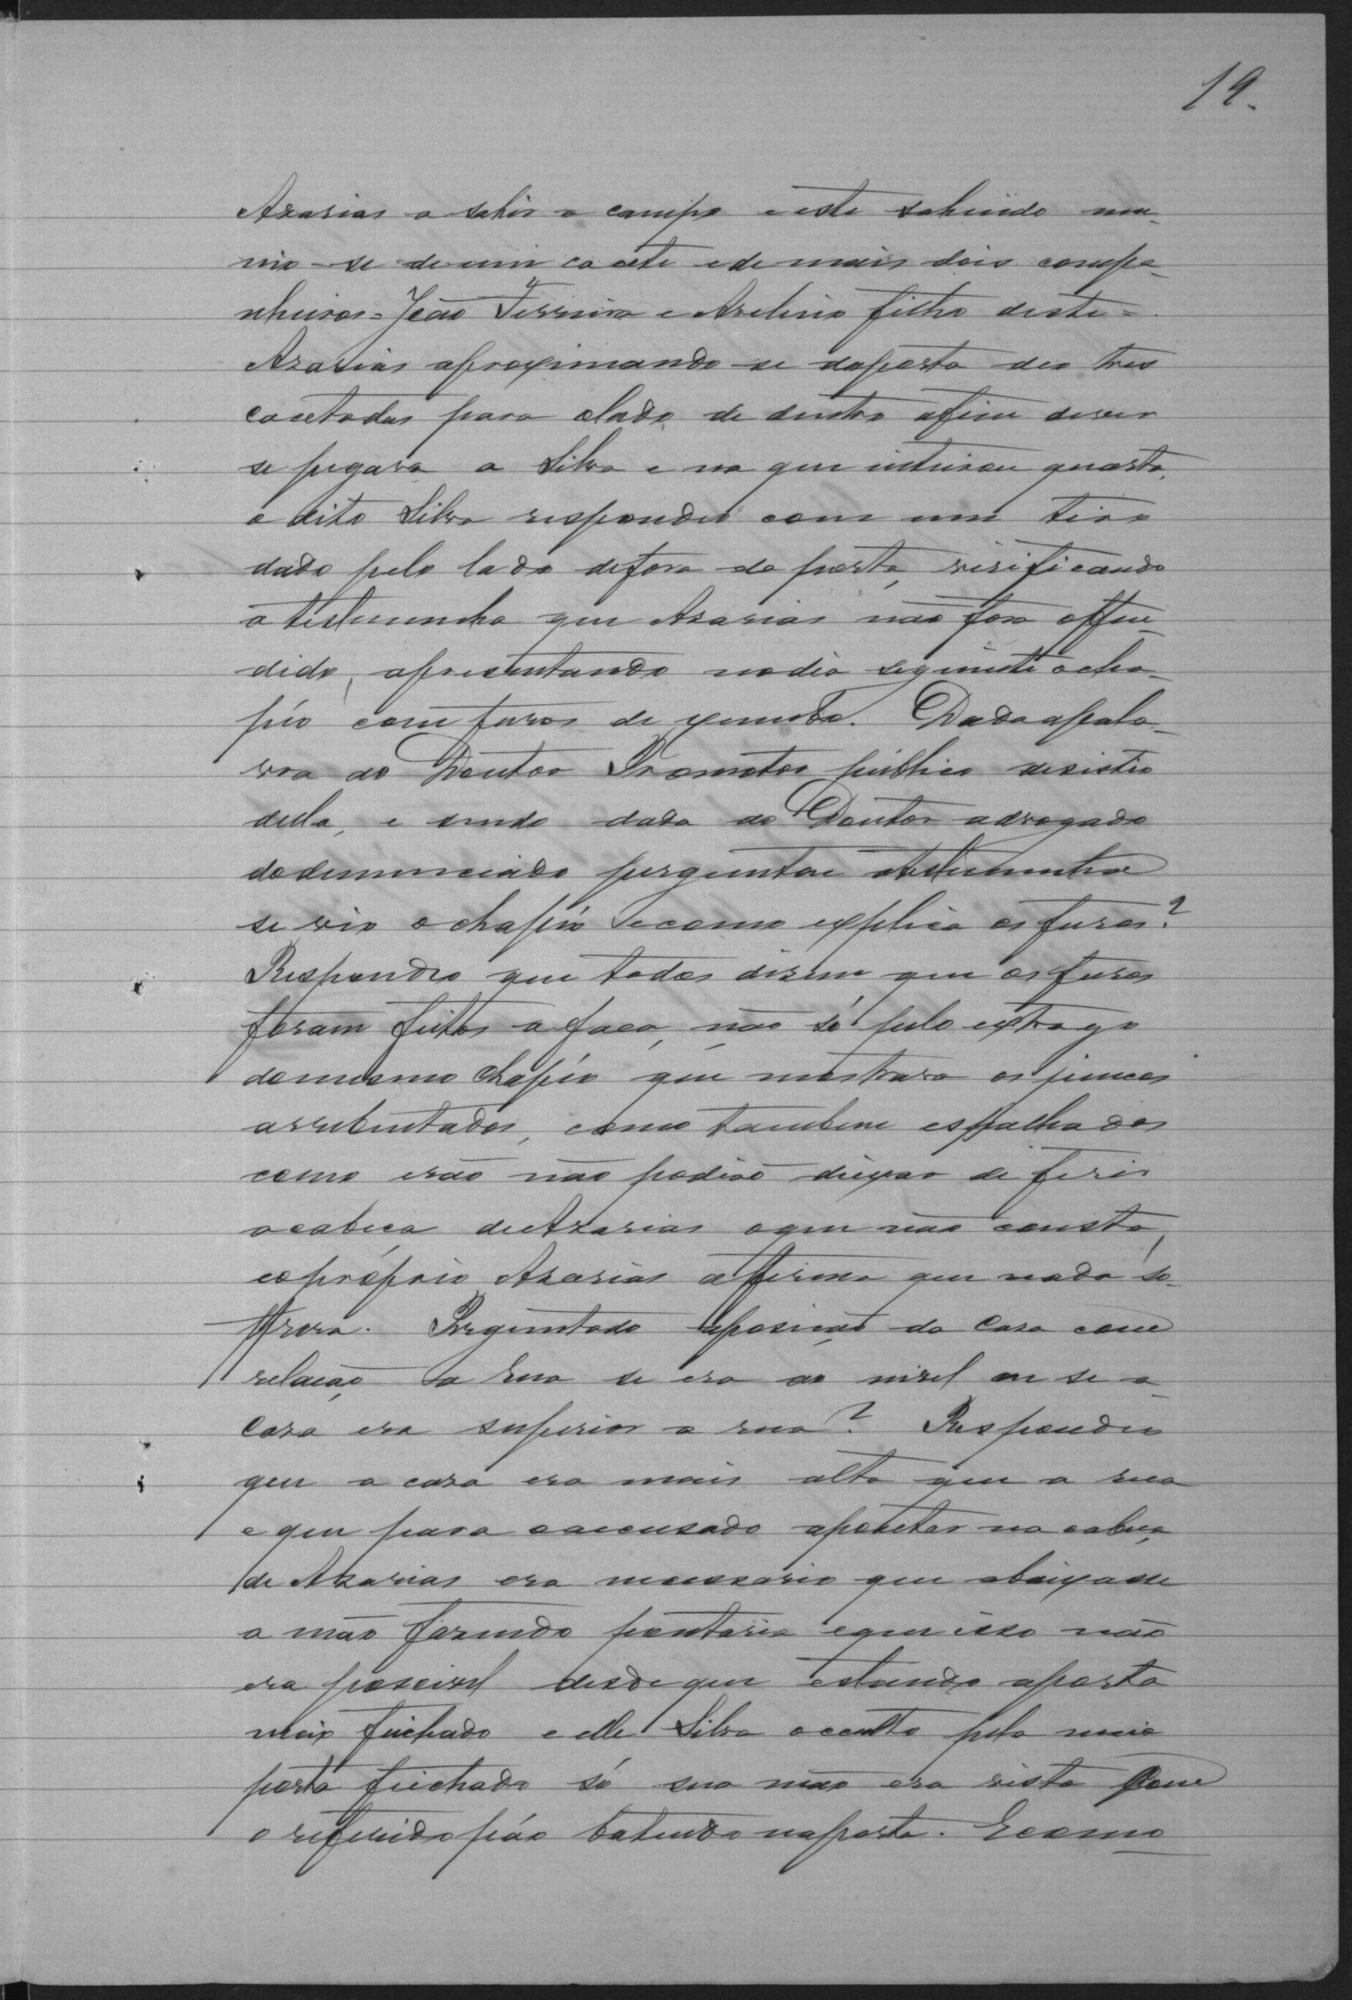 19.
Azarias a sahir a campo e este sahindo mu-
nio-se de um cacete e de mais dois compa-
nheiros = João Ferreira e Avelino filho deste =
Azarias aproximando-se daporta deu tres
cacetadas para olado de dentro afim dever
se pegava a Silva e na que intirou quarta,
o dito Silva respondeo com um tiro
dado pelo lado defora da porta, virificando
a testemunha que Azarias não fora offen-
dido, apresentando nodia seguinte ocha-
péo com furos de . Dada apala-
vra ao Doutor Promotor publico desistio
della, e sendo dada ao Doutor advogado
dodenunciado perguntou atestemunha
se vio o chapéo e como explica os furos?
Respondeo que todos dizem que os furos
foram feitos a faca, não só pelo extrago
domesmo chapéo que mostrava os juncos
arrebentados, como tambem espalhados
como erão não podião deixar de ferir
a cabeça de Azarias oque não consta,
eopróprio Azarias affirma que nada so-
ffrera. Perguntado aposição da casa com
relação a rua se era ao nivel ou se a
casa era superior a rua? Respondeo
que a casa era mais alta que a rua
e que para oaccusado apontar na cabeça
de Azarias era necessario que abaixasse
a mão fazendo pontaria eque isso não
era possivel desde que estando aporta
meio feichada e elle Silva occulto pela meia
porta feichada só sua mão era vista com
o referido páo batendo naporta. Ecomo